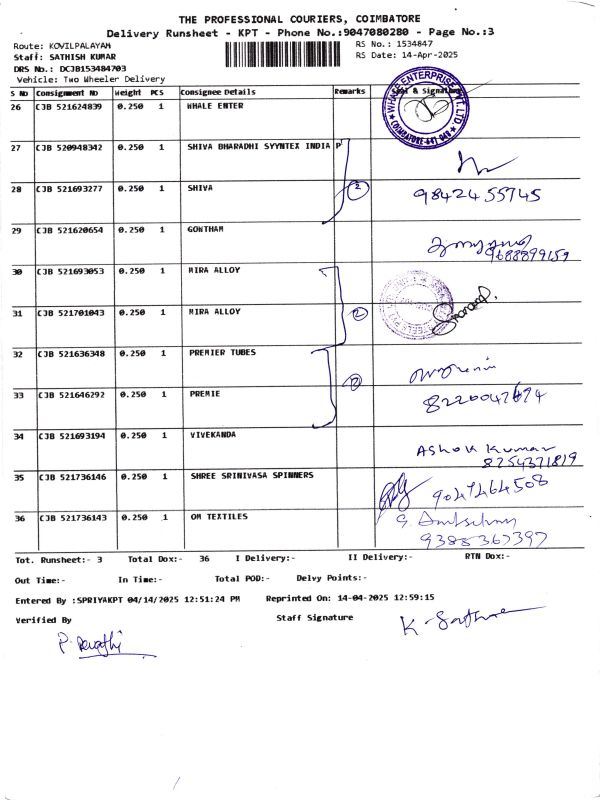 THE PROFESSIONAL COURIERS, COIMBATORE
Delivery Runsheet - KPT - Phone No.:9047080280 - Page No.:3
Route: KOVILPALAYAM
RS No.: 1534847
Staff: SATHISH KUMAR
RS Date: 14-Apr-2025
DRS No.: DCJB153484703
Vehicle: Two Wheeler Delivery
S No Consignment No Weight PCS Consignee Details Remarks Seal & Signature
26 CJB 521624839 0.250 1 WHALE ENTER
WHALE ENTERPRISE PVT. LTD. COIMBATORE-641 048
27 CJB 520948342 0.250 1 SHIVA BHARADHI SYYNTEX INDIA P
28 CJB 521693277 0.250 1 SHIVA 2 98424 55745
29 CJB 521620654 0.250 1 GONTHAM
9688899159
30 CJB 521693053 0.250 1 MIRA ALLOY
31 CJB 521701043 0.250 1 MIRA ALLOY 2
32 CJB 521636348 0.250 1 PREMIER TUBES
33 CJB 521646292 0.250 1 PREMIE 2
34 CJB 521693194 0.250 1 VIVEKANDA
Ashok Kumar
8254371819
35 CJB 521736146 0.250 1 SHREE SRINIVASA SPINNERS 9047464508
36 CJB 521736143 0.250 1 OM TEXTILES
9388367397
Tot. Runsheet:- 3 Total Dox:- 36 I Delivery:- II Delivery:- RTN Dox:-
Out Time:- In Time:- Total POD:- Delvy Points:-
Entered By :SPRIYAKPT 04/14/2025 12:51:24 PM Reprinted On: 14-04-2025 12:59:15
Verified By Staff Signature